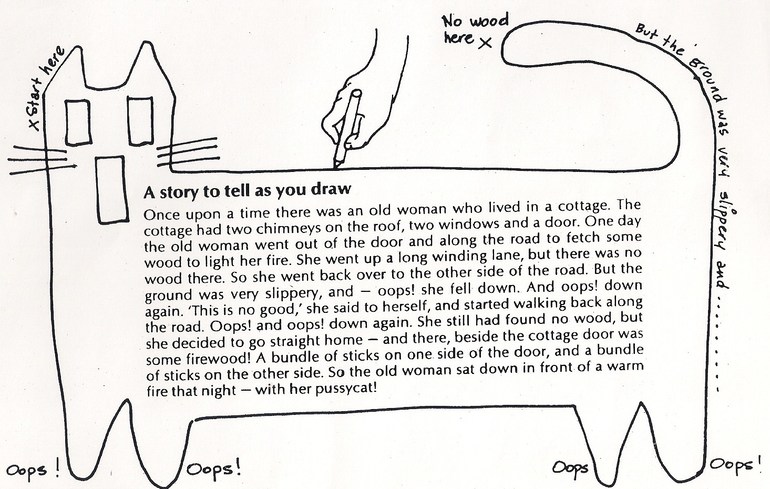 No wood
here x
x Start here
But the ground was very slippery and ..........
A story to tell as you draw
Once upon a time there was an old woman who lived in a cottage. The
cottage had two chimneys on the roof, two windows and a door. One day
the old woman went out of the door and along the road to fetch some
wood to light her fire. She went up a long winding lane, but there was no
wood there. So she went back over to the other side of the road. But the
ground was very slippery, and – oops! she fell down. And oops! down
again. ‘This is no good,’ she said to herself, and started walking back along
the road. Oops! and oops! down again. She still had found no wood, but
she decided to go straight home – and there, beside the cottage door was
some firewood! A bundle of sticks on one side of the door, and a bundle
of sticks on the other side. So the old woman sat down in front of a warm
fire that night – with her pussycat!
Oops!
Oops!
Oops
Oops!